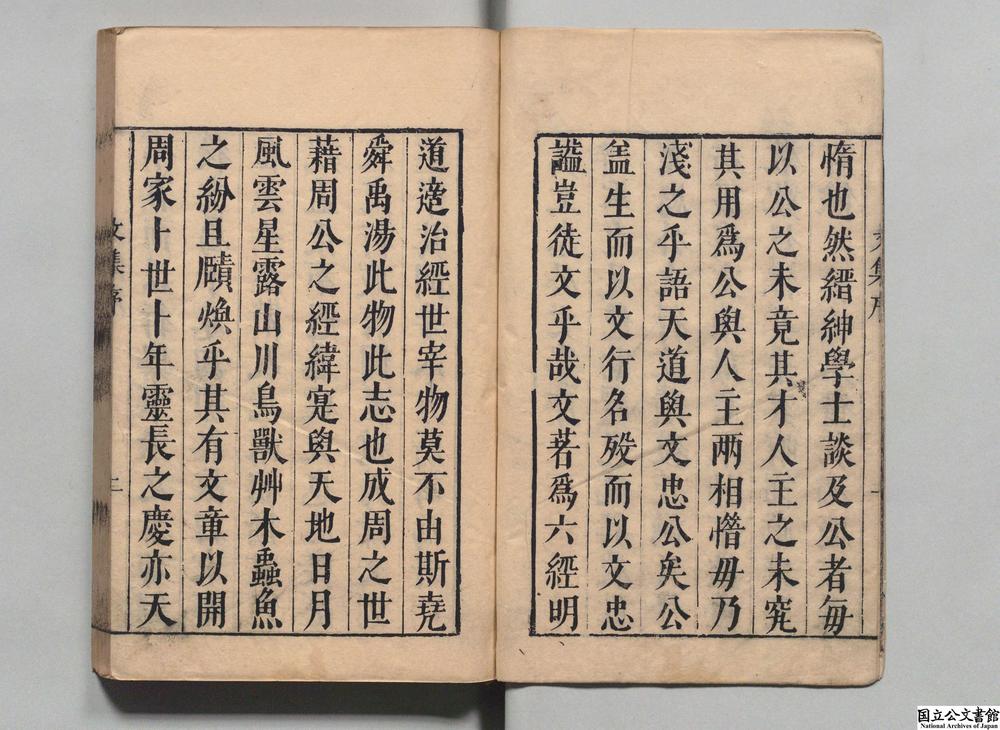 惰也然縉紳學士談及公者每
以公之未竟其才人主之未究
其用爲公與人主兩相惜毋乃
淺之乎語天道與文忠公矣公
盖生而以文行名殁而以文忠
謚豈徒文乎哉文若爲六經明
道達治經世宰物莫不由斯堯
舜禹湯此物此志也成周之世
藉周公之經緯寔與天地日月
風雲星露山川鳥獸艸木蟲魚
之紛且賾煥乎其有文章以開
周家十世十年靈長之慶亦天
文集序
二
国立公文書館
National Archives of Japan